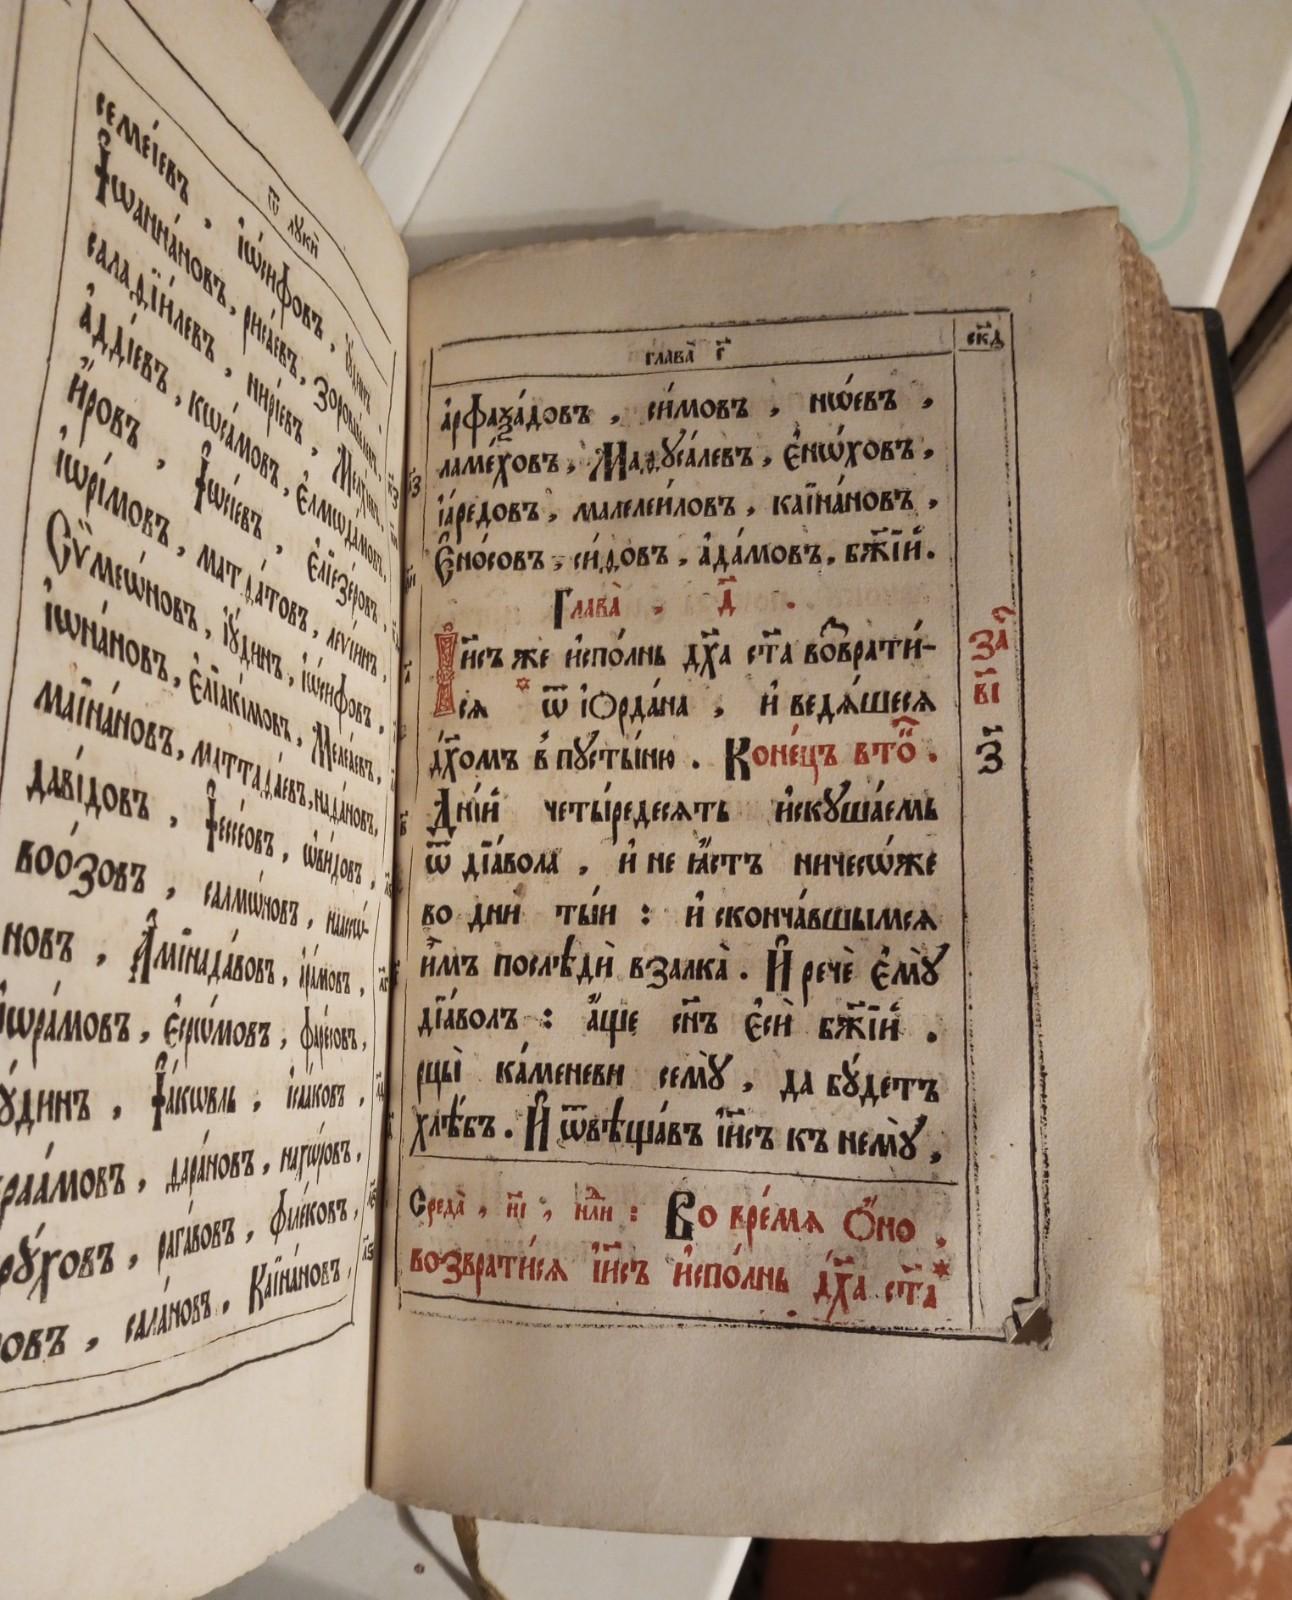 ѿ лꙋкѝ
семе́їевъ , і҆ѡ́сифовъ , і҆ꙋ́динъ ,
І҆ѡанна́новъ , риса́евъ , зоровавелевъ ,
салаѳїи́левъ , ни́рїевъ , Мелхїинъ ,
а҆ддїевъ , кѡса́мовъ , є҆лмѡда́мовъ ,
и҆́ровъ , І҆ѡсі́евъ , є҆лїезе́ровъ ,
і҆ѡрі́мовъ , матѳа́товъ , леѵі́инъ ,
Сѷмеѡ́новъ , і҆ꙋ́динъ , і҆ѡ́сифовъ ,
і҆ѡна́новъ , є҆лїакі́мовъ , Мелеа́евъ ,
маїна́новъ , маттаѳа́евъ , наѳа́новъ ,
даві́довъ , І҆ессе́овъ , ѡ҆ви́довъ ,
воо́зовъ , салмѡ́новъ , наассѡ-
новъ , А҆мїнада́вовъ , а҆ра́мовъ ,
і҆ѡра́мовъ , є҆срѡ́мовъ , фаре́совъ ,
ꙋдинъ , І҆а́кѡвль , і҆саа́ковъ ,
раа́мовъ , ѳара́новъ , нахѡ́ровъ ,
рꙋ́ховъ , рага́вовъ , фале́ковъ ,
овъ , сала́новъ . Каїна́новъ ,
глава̀ г҃
с҃кд
а҆рфаѯа́довъ , си́мовъ , нѡ́евъ ,
ламе́ховъ , Маѳꙋса́левъ , є҆нѡ́ховъ ,
і҆а́редовъ , малелеи́ловъ , каїна́новъ ,
Є҆но́совъ , си́ѳовъ , а҆да́мовъ , бж҃їй .
Глава̀ , д҃ .
І҆и҃съ же и҆спо́лнь дх҃а ст҃а возврати́-
ся * ѿ і҆ѻрда́на , и҆ ведѧ́шесѧ
дх҃омъ в пꙋсты́ню . Коне́цъ вто́ .
за҆
в҃і
з҃
Дні́й четы́редесѧть и҆скꙋша́емь
ѿ дїа́вола , и҆ не ꙗ҆́стъ ничесѡ́же
во дни̑ ты́и : и҆ сконча́вшымсѧ
и҆̀мъ послѣдѝ взалка̀ . И҆ речѐ є҆мꙋ̀
дїа́волъ : а҆́ще сн҃ъ є҆сѝ бж҃їй .
рцы̀ ка́меневи семꙋ̀ , да бꙋ́детъ
хлѣ́бъ . И҆ ѿвѣща́въ і҆и҃съ къ немꙋ̀ ,
Среда̀ , н҃і , нлⷣи : Во вре́мѧ ѻ҆́но ,
возврати́сѧ і҆и҃съ и҆спо́лнь дх҃а ст҃а *